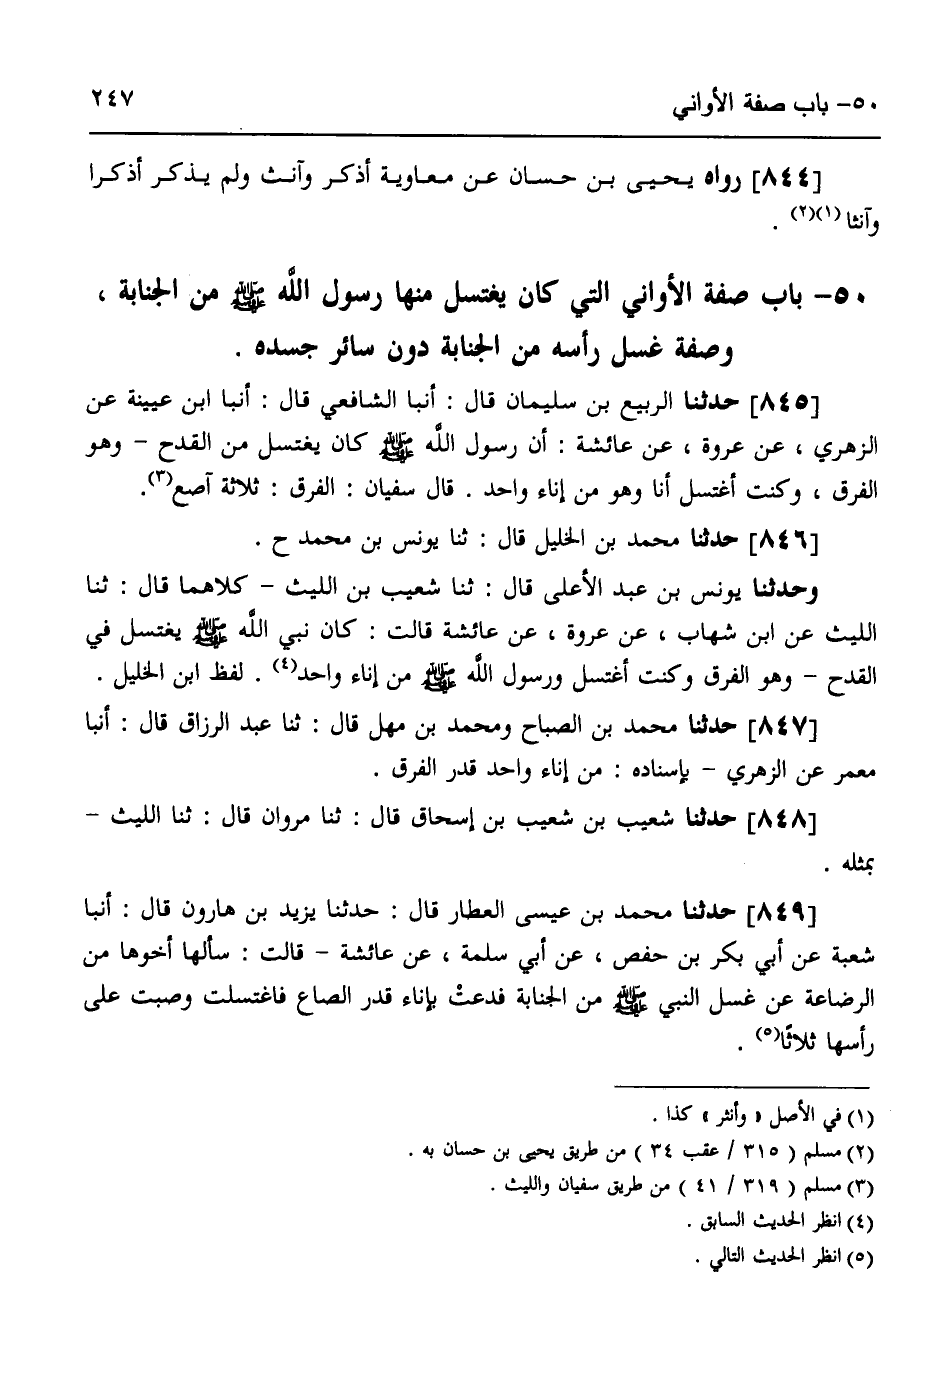 ٥٠- باب صفة الأواني ٢٤٧
[٨٤٤] رواه يحيى بن حسان عن معاوية أذكر وآنث ولم يذكر أذكرا
وآنثا(١)(٢) .
٥٠- باب صفة الأواني التي كان يغتسل منها رسول اللَّه ﷺ من الجنابة ،
وصفة غسل رأسه من الجنابة دون سائر جسده .
[٨٤٥] حدثنا الربيع بن سليمان قال : أنبا الشافعي قال : أنبا ابن عيينة عن
الزهري ، عن عروة ، عن عائشة : أن رسول اللَّه ﷺ كان يغتسل من القدح - وهو
الفرق ، وكنت أغتسل أنا وهو من إناء واحد . قال سفيان : الفرق : ثلاثة آصع(٣).
[٨٤٦] حدثنا محمد بن الخليل قال : ثنا يونس بن محمد ح .
وحدثنا يونس بن عبد الأعلى قال : ثنا شعيب بن الليث - كلاهما قال : ثنا
الليث عن ابن شهاب ، عن عروة ، عن عائشة قالت : كان نبي اللَّه ﷺ يغتسل في
القدح - وهو الفرق وكنت أغتسل ورسول اللَّه ﷺ من إناء واحد(٤) . لفظ ابن الخليل .
[٨٤٧] حدثنا محمد بن الصباح ومحمد بن مهل قال : ثنا عبد الرزاق قال : أنبا
معمر عن الزهري - بإسناده : من إناء واحد قدر الفرق .
[٨٤٨] حدثنا شعيب بن شعيب بن إسحاق قال : ثنا مروان قال : ثنا الليث -
بمثله .
[٨٤٩] حدثنا محمد بن عيسى العطار قال : حدثنا يزيد بن هارون قال : أنبا
شعبة عن أبي بكر بن حفص ، عن أبي سلمة ، عن عائشة - قالت : سألها أخوها من
الرضاعة عن غسل النبي ﷺ من الجنابة فدعتْ بإناء قدر الصاع فاغتسلت وصبت على
رأسها ثلاثًا(٥) .
(١) في الأصل « وأنثر » كذا .
(٢) مسلم ( ٣١٥ / عقب ٣٤ ) من طريق يحيى بن حسان به .
(٣) مسلم ( ٣١٩ / ٤١ ) من طريق سفيان والليث .
(٤) انظر الحديث السابق .
(٥) انظر الحديث التالي .